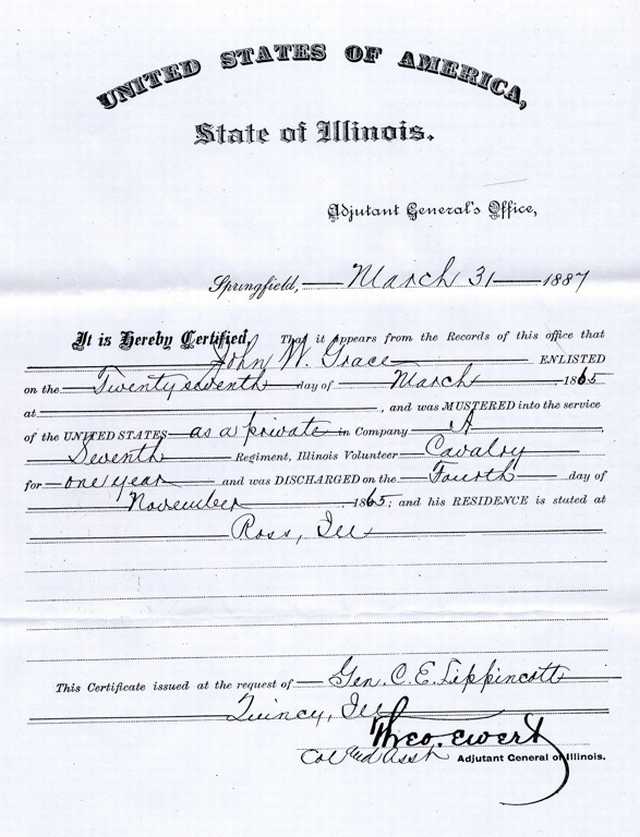 UNITED STATES OF AMERICA,
State of Illinois.
Adjutant General's Office,
Springfield, March 31 1887
It is Hereby Certified, That it appears from the Records of this office that
John W. Grace ENLISTED
on the Twenty seventh day of March 1865
at , and was MUSTERED into the service
of the UNITED STATES as a private in Company A
Seventh Regiment, Illinois Volunteer Cavalry
for one year and was DISCHARGED on the Fourth day of
November , 1865; and his RESIDENCE is stated at
Ross, Ill
This Certificate issued at the request of Gen. C. E. Lippincott
Quincy, Ill
Theo. Ewert
Col and Asst Adjutant General of Illinois.